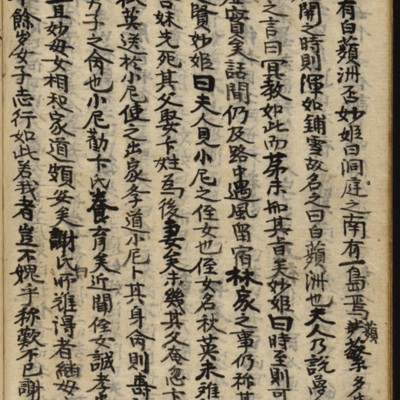 有白蘋洲否妙姬曰洞庭之南有一島焉蘋蘩多生
開之時則渾如鋪雪故名之曰白蘋洲也夫人乃說夢
之言曰冥教如此而第未知其旨矣妙姬曰時至則可
虛實矣話間仍及路中遇風留宿林家之事仍称其
賢妙姬曰夫人見小尼之侄女也侄女名秋英未離
吾妹先死其父娶卞姓爲後妻矣未幾其父奄忽卞
秋英送於小尼使之出家學道小尼卜其身命則壽
男子之命也小尼勸卞氏養育矣近聞侄女誠孝
且妙母女相和家道頗安矣謝氏師難得者
餘岁女子志行如此若我者豈不媿乎称歎不已謝